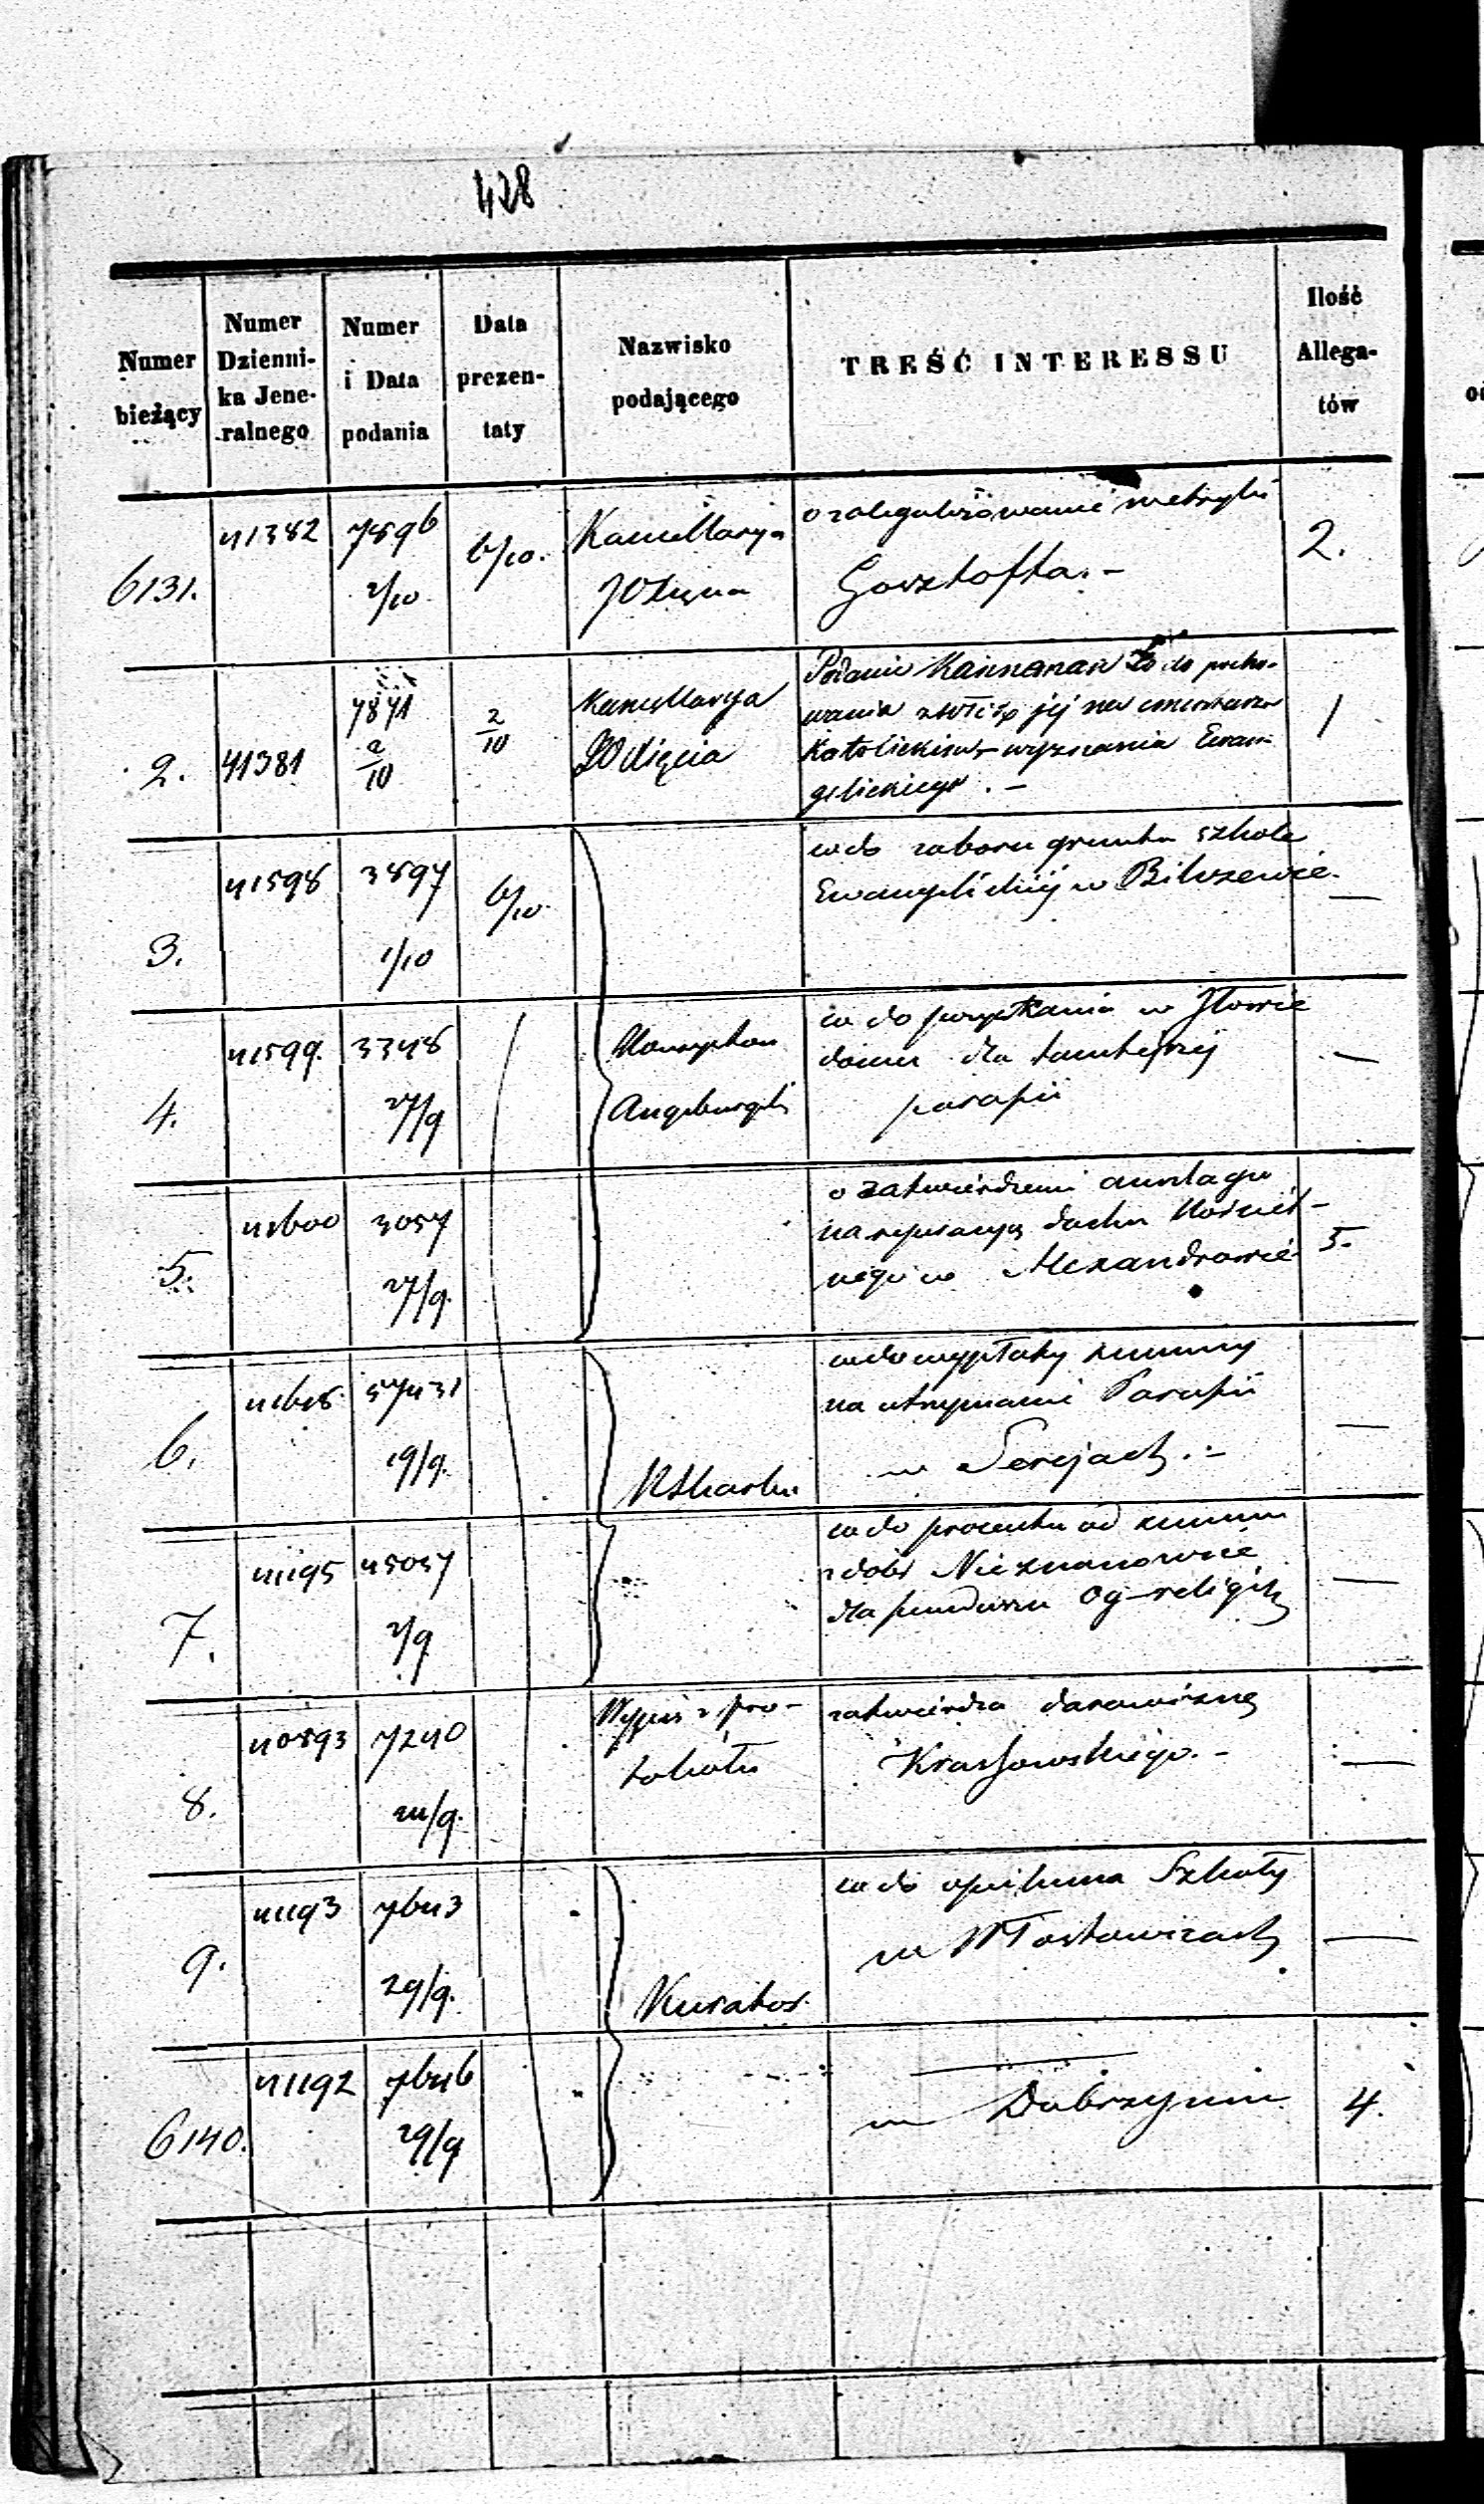 428
Numer bieżący
Numer Dzienni-
ka Jene-
ralnego
Numer
i Data
podania
Data
prezen-
taty
Nazwisko
podającego
TREŚĆ INTERESSU
Ilość
Allega-
tów
6131. 41382 7896 2/10 6/10. Kancellarya o zalegalizowanie metryki 2.
Xsięcia Gosztofta. –
2. 41381 7871 2/10 2/10 Kancellarya Podanie co do pocho-
Xsięcia wania zwłok jej na cmentarzu 1
Katolickim wyznania Ewan-
gelickiego. –
3. 41598 3897 1/10 6/10. co do zaboru gruntu szkole
Ewangelickiej w —
4. 41599. 3348 27/9 Konsystorz co do pozyskania w Iłowie
Augsburgski domu dla tamtejszej —
parafii
5. 41600 3057 27/9. o zatwierdzenie anszlagu
na reparacyą dachu Kościel-
nego w Alexandrowie 5.
6. 57431 19/9. co do wypłaty summy
na utrzymanie Parafii —
w Serejach. –
KSkarbu
7. 41195 45057 2/9 co do procentu od summ
z dóbr Nieznanowice —
dla funduszu og-religij
8. 40893 7240 24/9. Wypis z pro- zatwierdza darowiznę
tokołu Krassowskiego. – —
9. 41193 7643 29/9. co do opiekuna Szkoły
w Włostowicach —
Kurator
6140. 41192 7646 29/9 —
w Dobrzyniu 4.